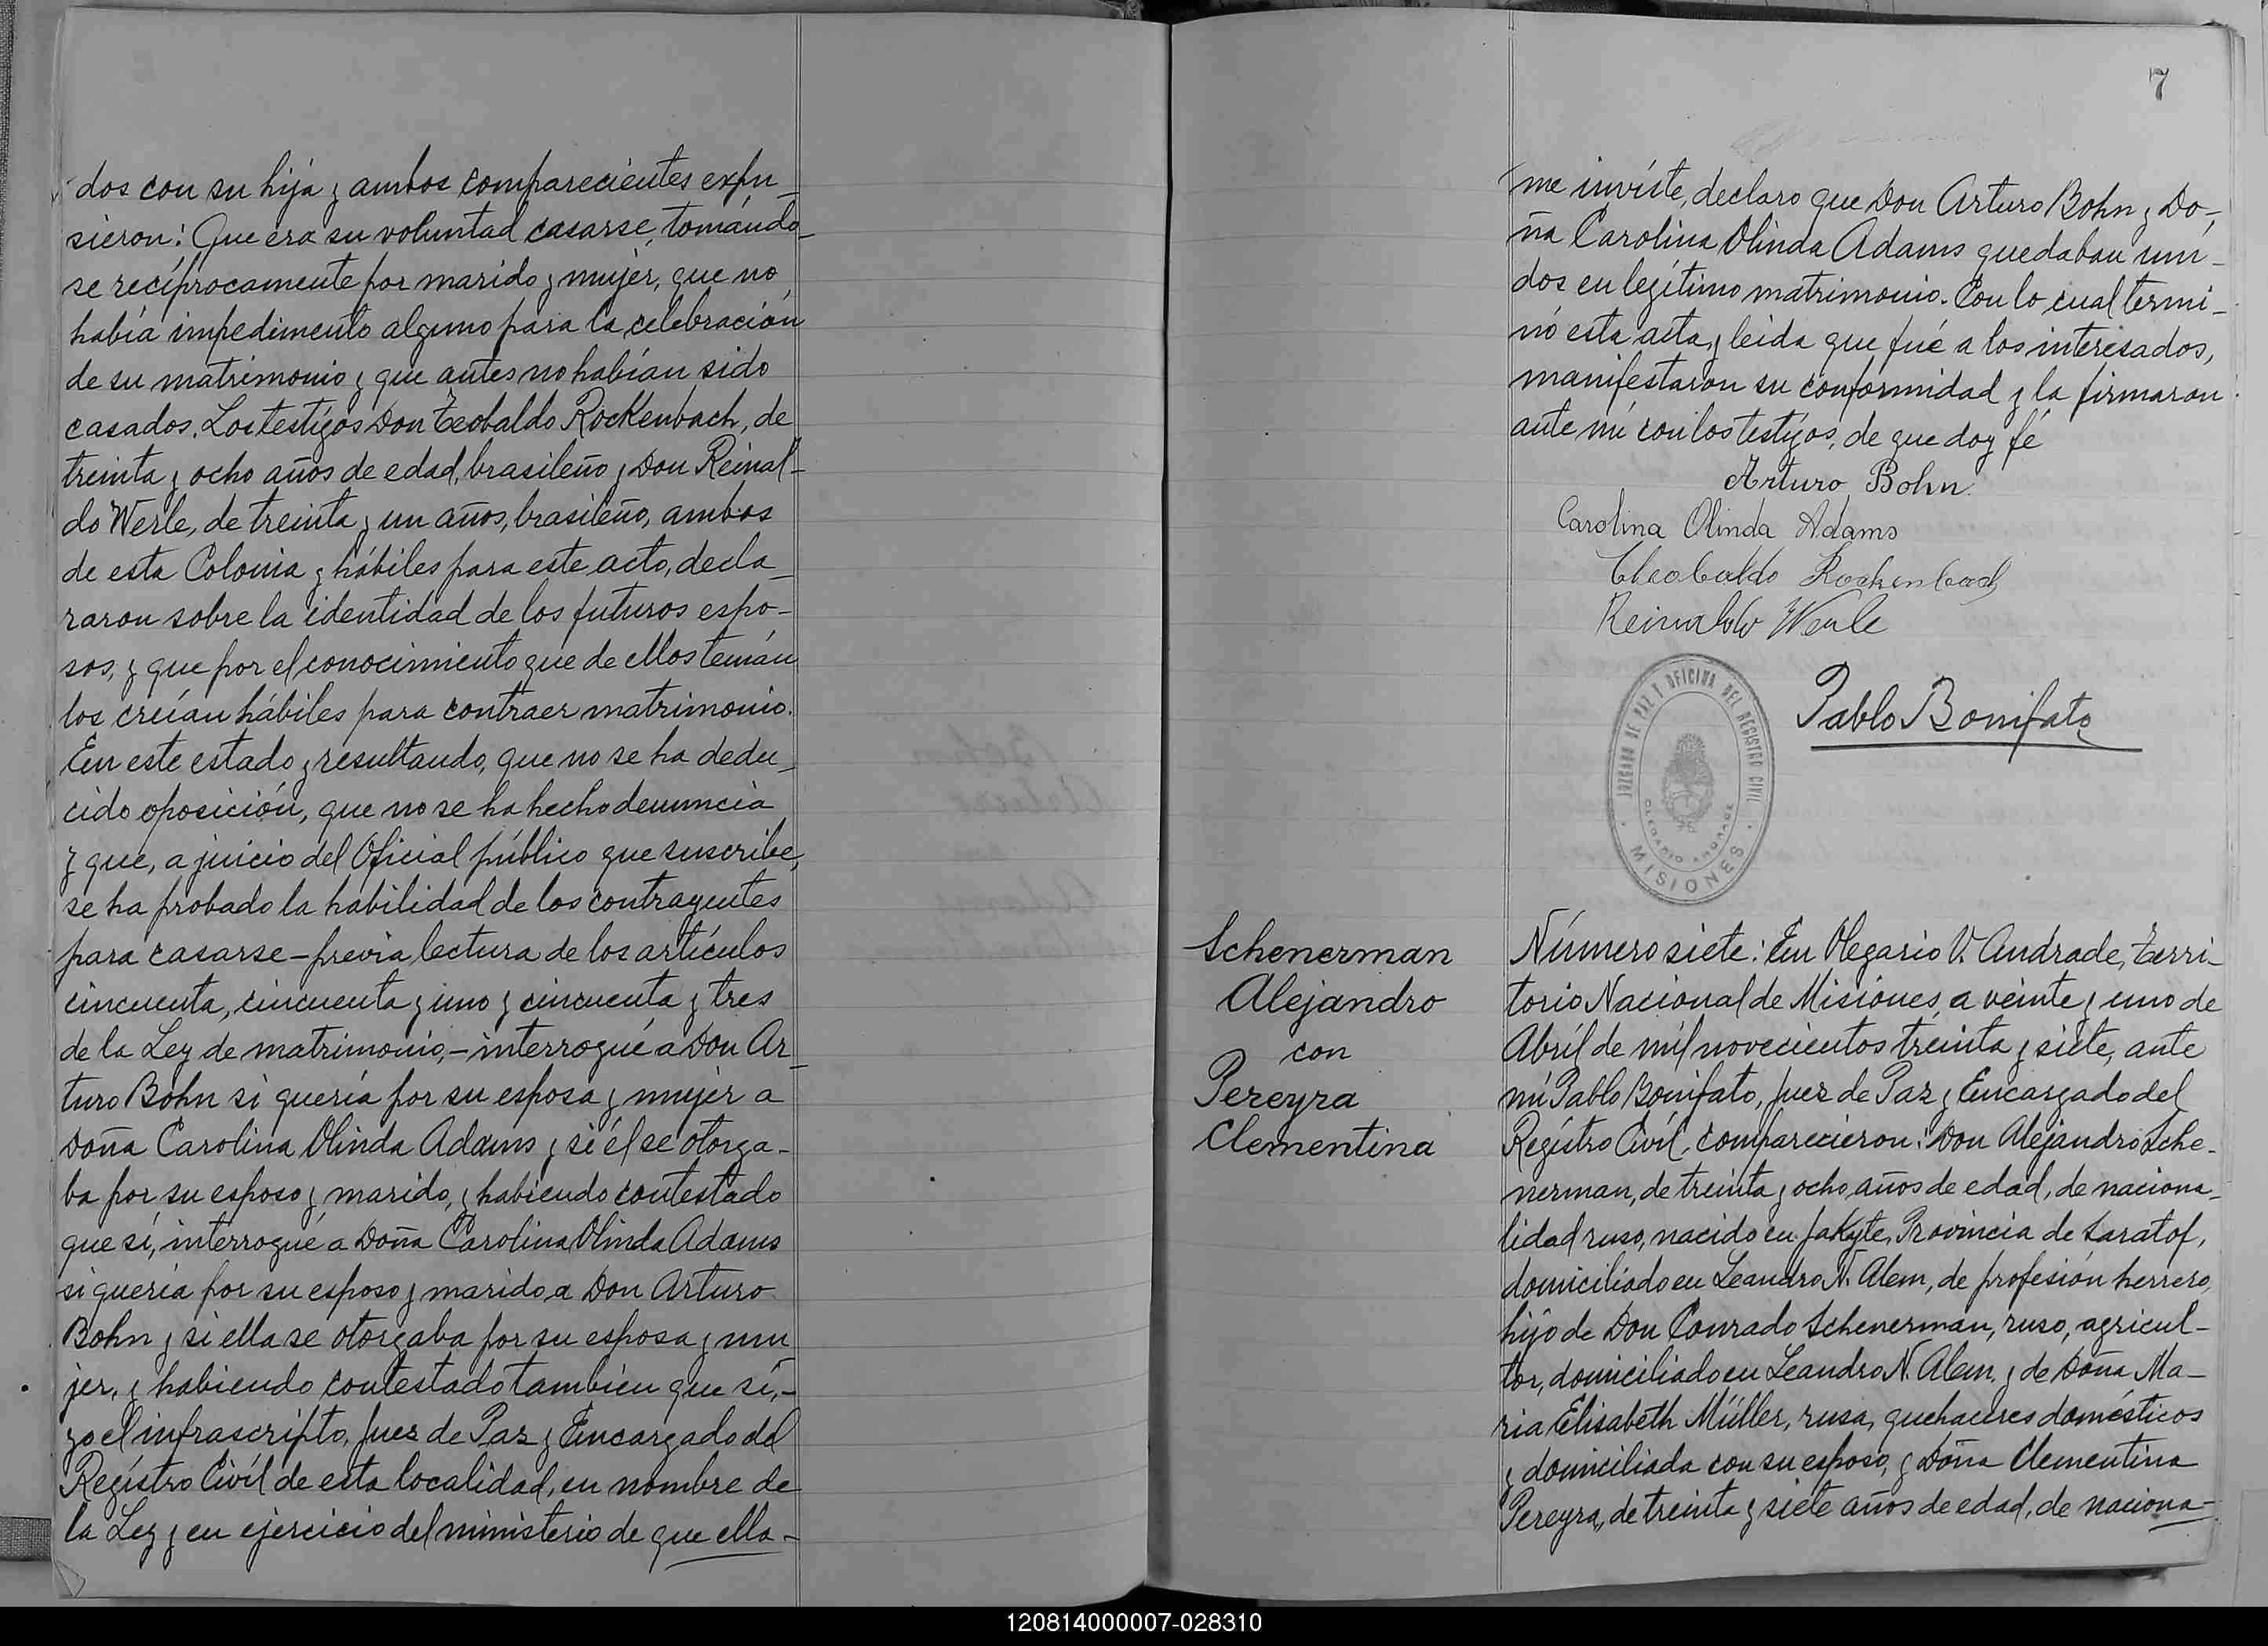 dos con su hija y ambos comparecientes expu_
sieron: Que era su voluntad casarse, tomándo_
se recíprocamente por marido y mujer, que no
había impedimento alguno para la celebración
de su matrimonio y que antes no habían sido
casados. Los testigos Don Teobaldo Rockenbach, de
treinta y ocho años de edad, brasileño y Don Reinal-
do Werle, de treinta y un años, brasileño, ambos
de esta Colonia y hábiles para este acto, decla_
raron sobre la identidad de los futuros espo-
sos, y que por el conocimiento que de ellos tenían
los creían hábiles para contraer matrimonio.
En este estado y resultando, que no se ha dedu_
cido oposición, que no se ha hecho denuncia
y que, a juicio del Oficial público que suscribe,
se ha probado la habilidad de los contrayentes
para casarse - previa lectura de los artículos
cincuenta, cincuenta y uno y cincuenta y tres
de la Ley de matrimonio, - interrogué a Don Ar_
turo Bohn si quería por su esposa y mujer a
Doña Carolina Olinda Adams y si él se otorga-
ba por su esposo y marido, y habiendo contestado
que sí, interrogué a Doña Carolina Olinda Adams
si quería por su esposo y marido a Don Arturo
Bohn y si ella se otorgaba por su esposa y mu_
jer, y habiendo contestado también que sí, -
yo el infrascripto, Juez de Paz y Encargado del
Registro Civil de esta localidad, en nombre de
la Ley y en ejercicio del ministerio de que ella -
7
me inviste, declaro que Don Arturo Bohn y Do-
ña Carolina Olinda Adams quedaban uni_
dos en legítimo matrimonio. Con lo cual termi_
nó esta acta, y leida que fué a los interesados,
manifestaron su conformidad y la firmaron
ante mí con los testigos, de que doy fé
Arturo Bohn.
Carolina Olinda Adams
Theobaldo Rockenbach
Reinaldo Werle
Pablo Bonifato
JUZGADO DE PAZ Y OFICINA DEL REGISTRO CIVIL
OLEGARIO ANDRADE
MISIONES
Schenerman
Alejandro
con
Pereyra
Clementina
Número siete: En Olegario V. Andrade, Terri_
torio Nacional de Misiones, a veinte y uno de
Abríl de mil novecientos treinta y siete, ante
mí Pablo Bonifato, Juez de Paz y Encargado del
Registro Civil, comparecieron: Don Alejandro Sche_
nerman, de treinta y ocho años de edad, de naciona_
lidad ruso, nacido en Jakyte, Provincia de Saratof,
domiciliado en Leandro N. Alem, de profesión herrero,
hijo de Don Conrado Schenerman, ruso, agricul-
tor, domiciliado en Leandro N. Alem. y de Doña Ma-
ria Elisabeth Müller, rusa, quehaceres domésticos
y domiciliada con su esposo, y Doña Clementina
Pereyra, de treinta y siete años de edad, de naciona-
120814000007-028310